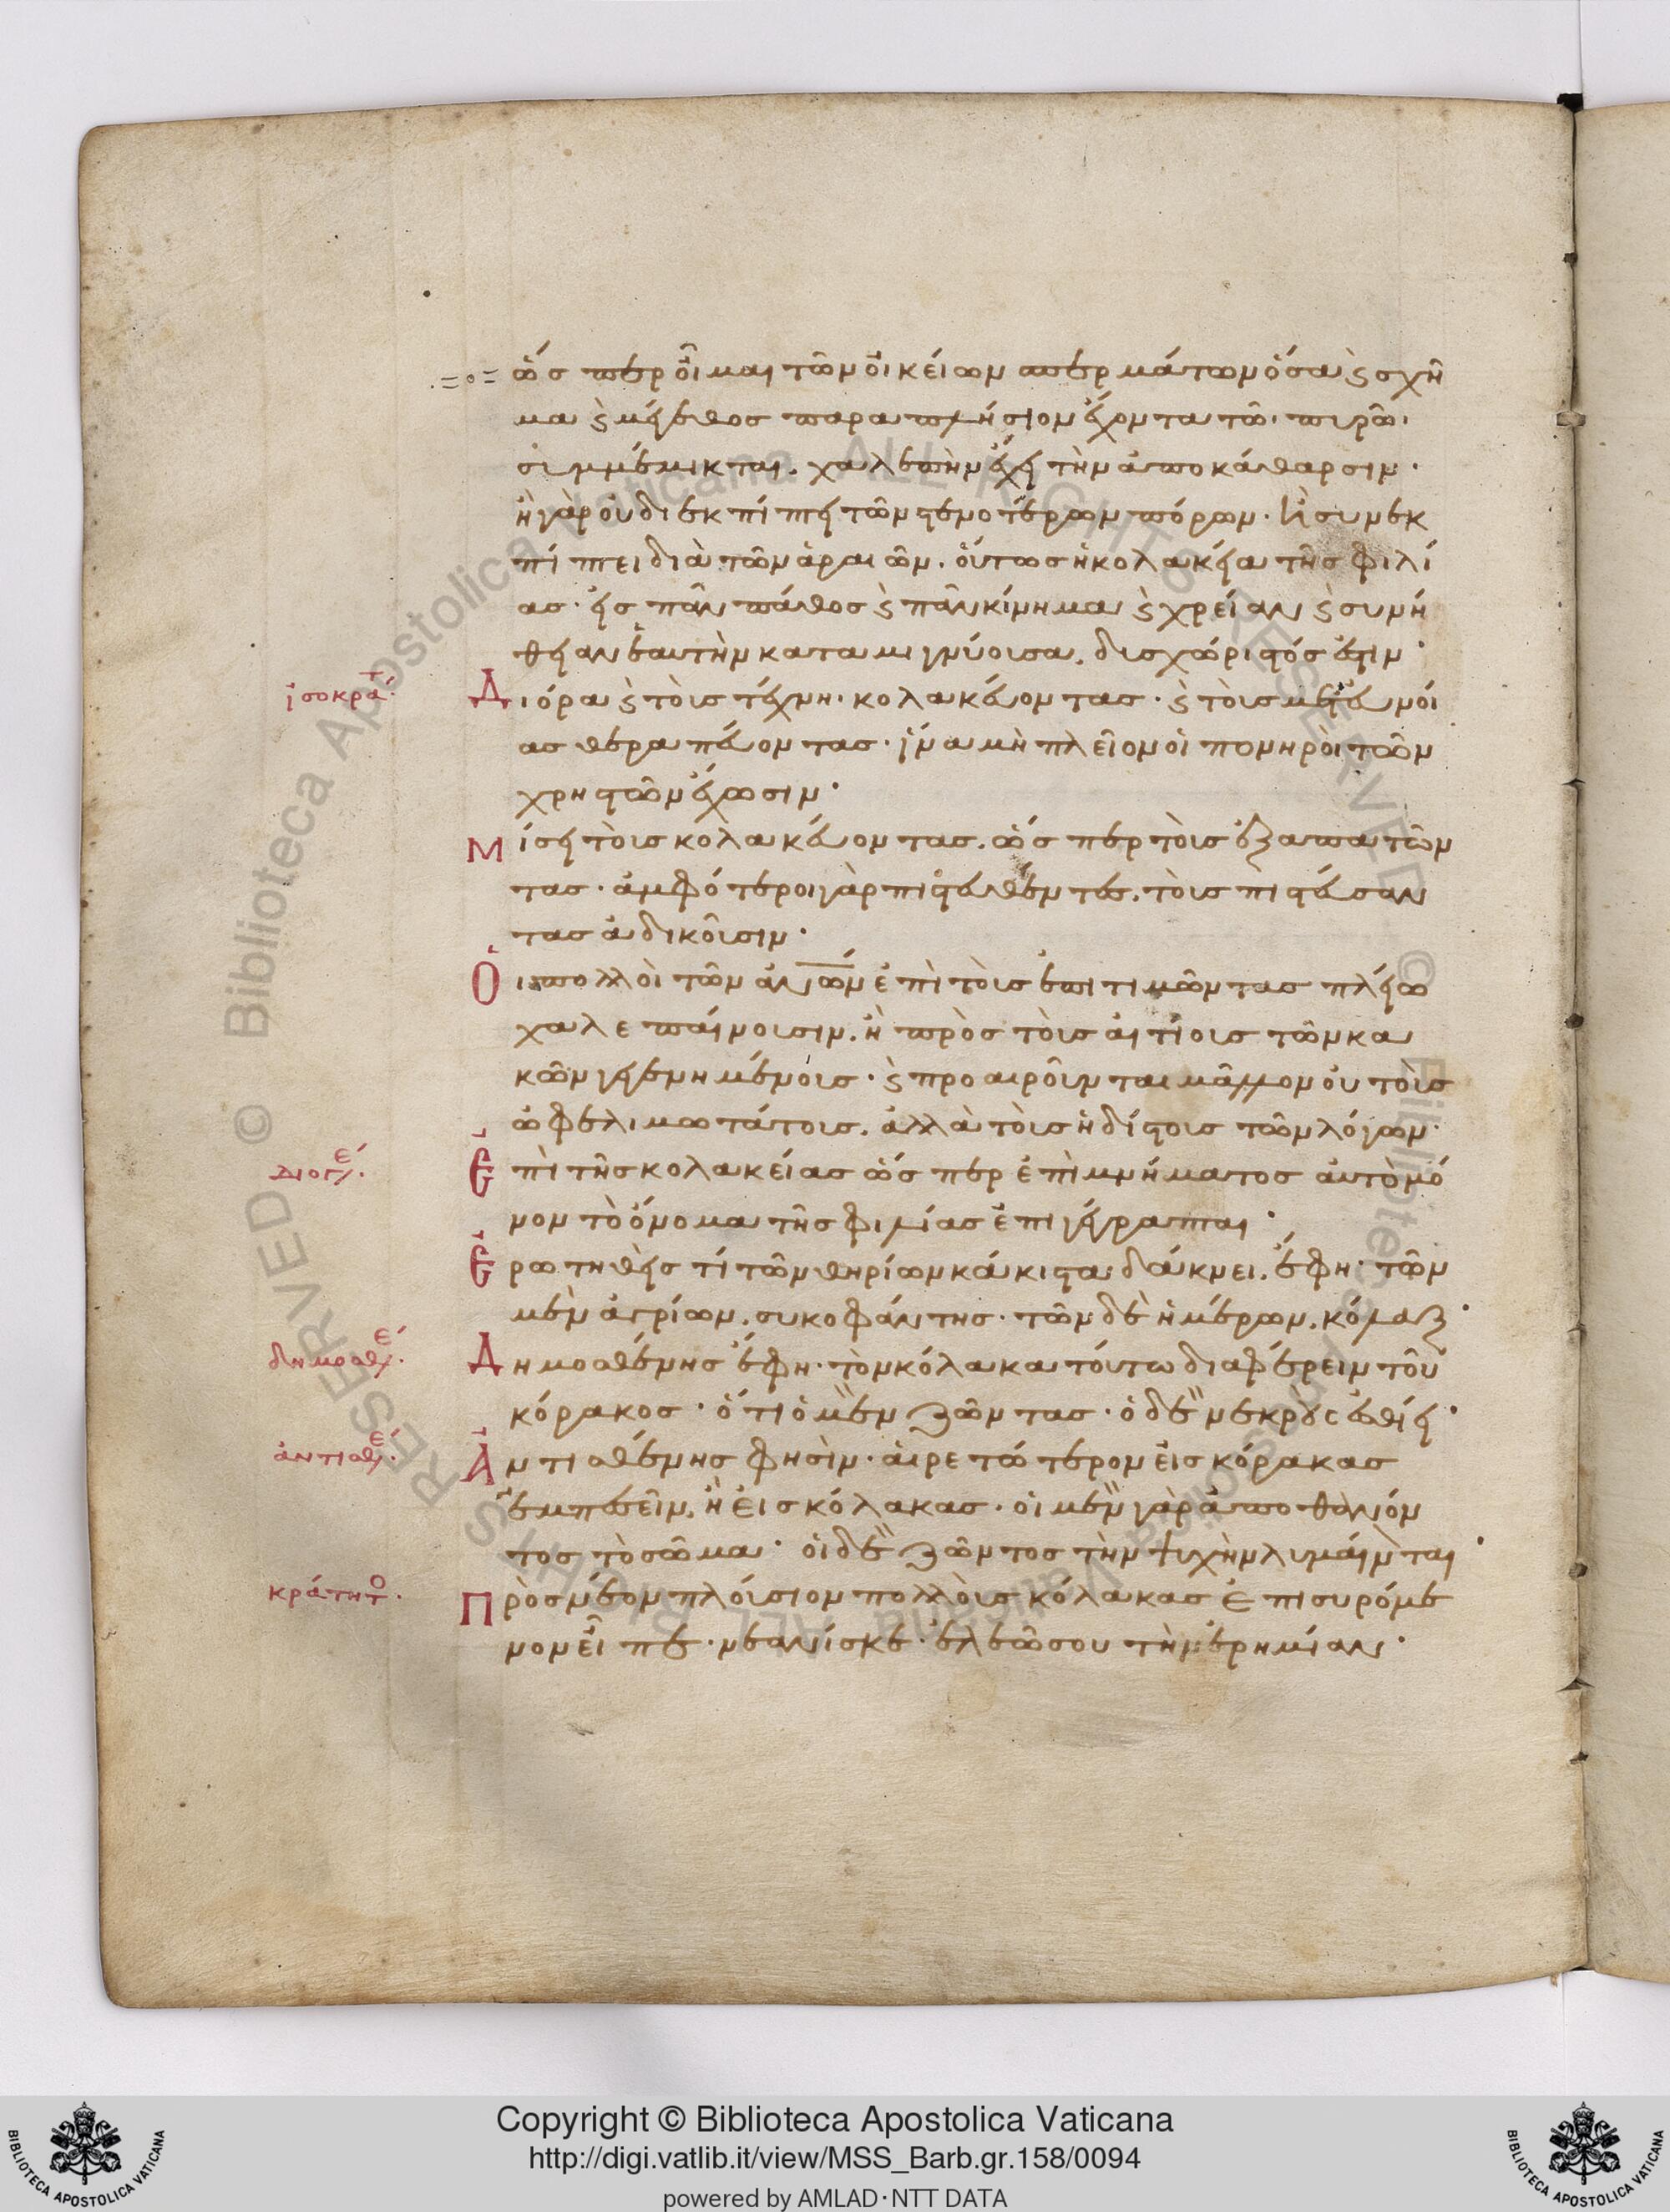 ὥσπερ οἶμαι τῶν οἰκείων σπερμάτων ὅσα καὶ σχῆ
μα καὶ μέγεθος παραπλήσιον ἔχοντα τῶ πυρῶ
συμμέμικται. χαλεπὴν ἔχει τὴν ἀποκάθαρσιν·
ἢ γὰρ οὐ διεκπίπτει τῶν στενοτέρων πόρων· ἢ συνεκ
πίπτει διὰ τῶν ἀραιῶν. οὕτως ἡ κολακεία τῆς φιλί
ας· εἰς πᾶν πάθος καὶ πᾶν κίνημα καὶ χρείαν καὶ συνή
θειαν ἑαυτὴν καταμιγνύουσα. δυσχώριστός ἐστιν·
ἰσοκράτ.
Διόρα καὶ τοὺς τέχνη κολακεύοντας· καὶ τοὺς μετ' εὐνοί
ας θεραπεύοντας· ἵνα μὴ πλεῖον οἱ πονηροὶ τῶν
χρηστῶν ἔχωσιν·
Μίσει τοὺς κολακεύοντας. ὥσπερ τοὺς ἐξαπατῶν
τας· ἀμφότεροι γὰρ πιστευθέντες. τοὺς πιστεύσαν
τας ἀδικοῦσιν·
Οἱ πολλοὶ τῶν ἀνων ἐπὶ τοὺς ἐπιτιμῶντας πλείω
χαλεπαίνουσιν. ἢ πρὸς τοὺς αἰτίους τῶν κα
κῶν γεγενημένους· καὶ προαιροῦνται μᾶλλον οὐ τοὺς
ὠφελιμωτάτους. ἀλλὰ τοὺς ἡδίστους τῶν λόγων·
Διογέ.
Ἐπὶ τῆς κολακείας ὥσπερ ἐπὶ μνήματος αὐτὸ μό
νον τὸ ὄνομα τῆς φιλίας ἐπιγέγραπται·
Ἐρωτηθεὶς τί τῶν θηρίων κάκιστα δάκνει. ἔφη· τῶν
μὲν ἀγρίων. συκοφάντης· τῶν δὲ ἡμέρων. κόλαξ·
δημοσθέ.
Δημοσθένης ἔφη· τὸν κόλακα τούτω διαφέρειν τοῦ
κόρακος· ὅτι ὁ μὲν ζῶντας· ὁ δὲ νεκροὺς ἐσθίει·
ἀντισθέ.
Ἀντισθένης φησὶν· αἱρετώτερον εἰς κόρακας
ἐμπεσεῖν. ἢ εἰς κόλακας· οἱ μὲν γὰρ ἀποθανόν
τος τὸ σῶμα· οἱ δὲ ζῶντος τὴν ψυχὴν λυμαίνεται·
κράτητο.
Πρὸς νέον πλούσιον πολλοὺς κόλακας ἐπισυρόμε
νον εἶπε· νεανίσκε· ἐλεῶ σου τὴν ἐρημίαν·
Copyright © Biblioteca Apostolica Vaticana
http://digi.vatlib.it/view/MSS_Barb.gr.158/0094
powered by AMLAD·NTT DATA